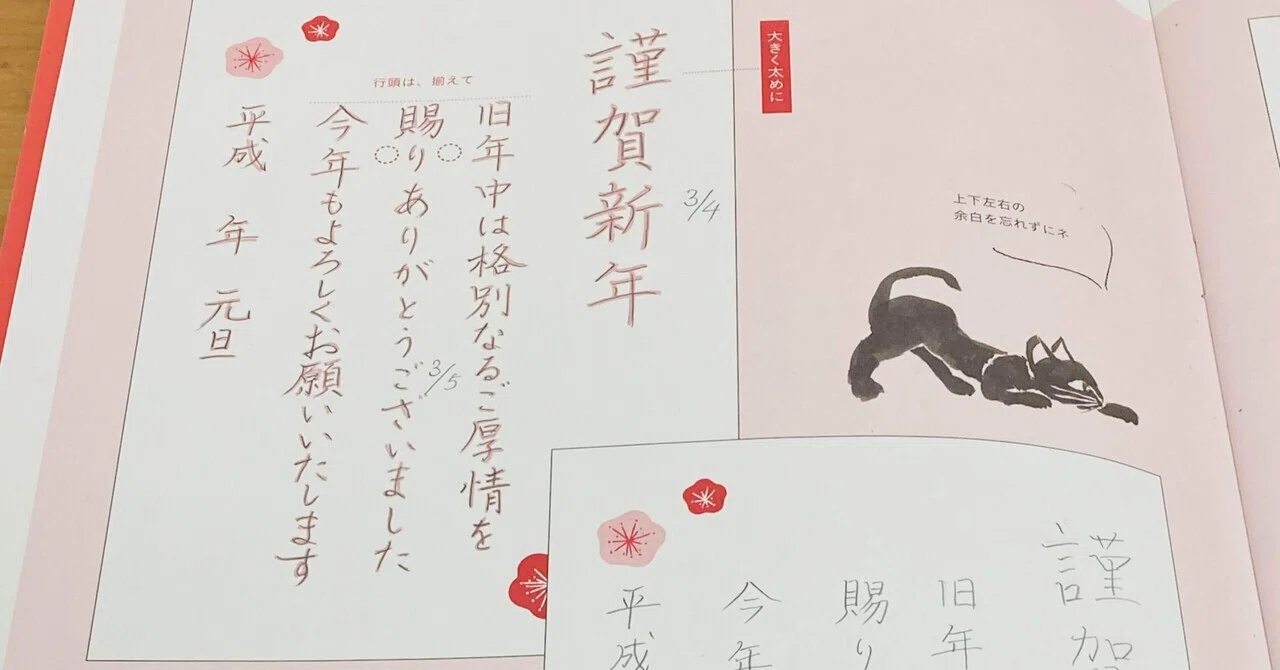 大きく太めに
謹賀新年
3/4
行頭は、揃えて
旧年中は格別なるご厚情を
賜りありがとうございました
3/5
今年もよろしくお願いいたします
平成 年 元旦
上下左右の
余白を忘れずにネ
謹賀
旧年
賜り
今年
平成